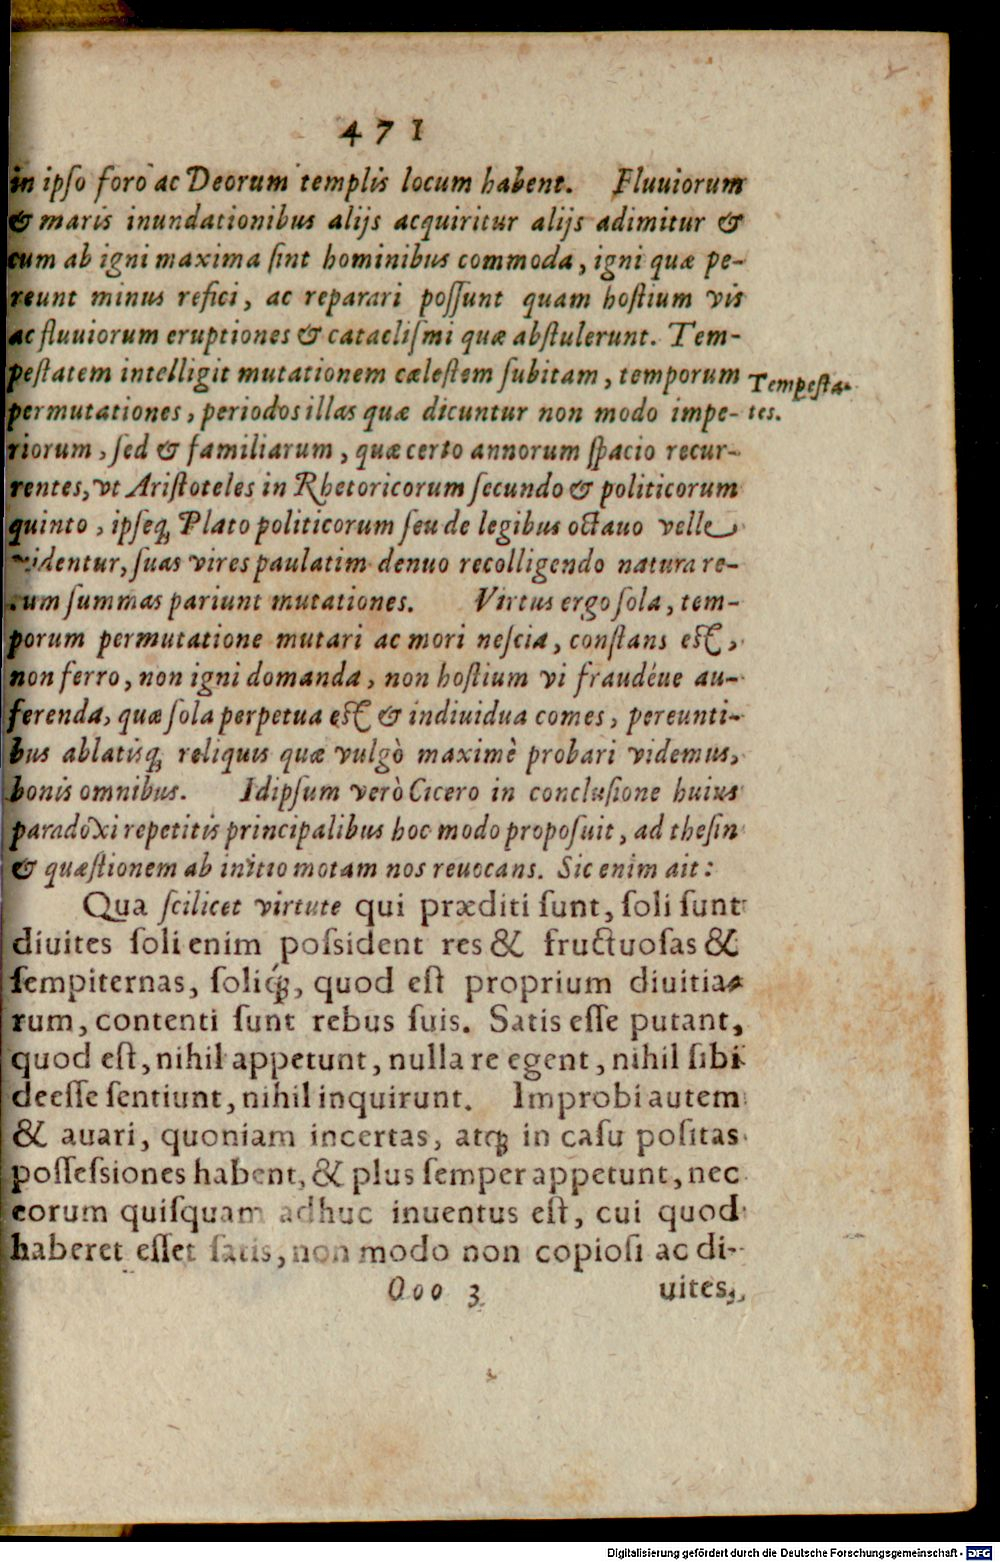 471
in ipſo foro ac Deorum templis locum habent. Fluuiorum
& maris inundationibus alijs acquiritur alijs adimitur &
cum ab igni maxima ſint hominibus commoda, igni quæ pe-
reunt minus refici, ac reparari poſſunt quam hoſtium vis
ac fluuiorum eruptiones & catacliſmi quæ abſtulerunt. Tem-
peſtatem intelligit mutationem cæleſtem ſubitam, temporum
Tempeſta-
permutationes, periodos illas quæ dicuntur non modo impe-
tes.
riorum, ſed & familiarum, quæ certo annorum ſpacio recur-
rentes, vt Ariſtoteles in Rhetoricorum ſecundo & politicorum
quinto, ipſeq́; Plato politicorum ſeu de legibus octauo velle
videntur, ſuas vires paulatim denuo recolligendo natura re-
rum ſummas pariunt mutationes. Virtus ergo ſola, tem-
porum permutatione mutari ac mori neſcia, conſtans eſt,
non ferro, non igni domanda, non hoſtium vi fraudéue au-
ferenda, quæ ſola perpetua eſt & indiuidua comes, pereunti-
bus ablatisq́; reliquis quæ vulgò maximè probari videmus,
bonis omnibus. Idipſum verò Cicero in concluſione huius
paradoxi repetitis principalibus hoc modo propoſuit, ad theſin
& quæſtionem ab initio motam nos reuocans. Sic enim ait:
Qua ſcilicet virtute qui præditi ſunt, ſoli ſunt
diuites ſoli enim poſsident res & fructuoſas &
ſempiternas, ſoliq́;, quod eſt proprium diuitia-
rum, contenti ſunt rebus ſuis. Satis eſſe putant,
quod eſt, nihil appetunt, nulla re egent, nihil ſibi
deeſſe ſentiunt, nihil inquirunt. Improbi autem
& auari, quoniam incertas, atq; in caſu poſitas
poſſeſsiones habent, & plus ſemper appetunt, nec
eorum quiſquam adhuc inuentus eſt, cui quod
haberet eſſet ſatis, non modo non copioſi ac di-
Ooo 3 uites,
Digitalisierung gefördert durch die Deutsche Forschungsgemeinschaft - DFG